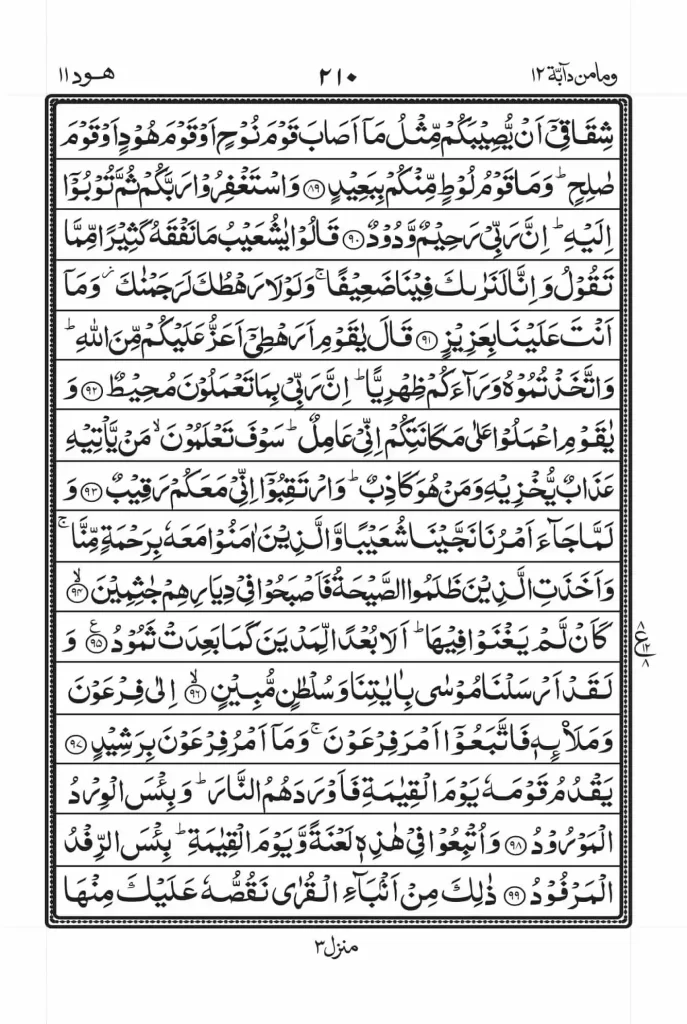 ومامن دآبة ١٢ ٢١٠ هود ١١
شِقَاقِیْۤ اَنْ یُّصِیْبَكُمْ مِّثْلُ مَاۤ اَصَابَ قَوْمَ نُوْحٍ اَوْ قَوْمَ هُوْدٍ اَوْ قَوْمَ
صٰلِحٍ ؕ وَمَا قَوْمُ لُوْطٍ مِّنْكُمْ بِبَعِیْدٍ ﴿۸۹﴾ وَاسْتَغْفِرُوْا رَبَّكُمْ ثُمَّ تُوْبُوْۤا
اِلَیْهِ ؕ اِنَّ رَبِّیْ رَحِیْمٌ وَّدُوْدٌ ﴿۹۰﴾ قَالُوْا یٰشُعَیْبُ مَا نَفْقَهُ كَثِیْرًا مِّمَّا
تَقُوْلُ وَاِنَّا لَنَرٰىكَ فِیْنَا ضَعِیْفًا ۚ وَلَوْلَا رَهْطُكَ لَرَجَمْنٰكَ ؗ وَمَاۤ
اَنْتَ عَلَیْنَا بِعَزِیْزٍ ﴿۹۱﴾ قَالَ یٰقَوْمِ اَرَهْطِیْۤ اَعَزُّ عَلَیْكُمْ مِّنَ اللّٰهِ ؕ
وَاتَّخَذْتُمُوْهُ وَرَآءَكُمْ ظِهْرِیًّا ؕ اِنَّ رَبِّیْ بِمَا تَعْمَلُوْنَ مُحِیْطٌ ﴿۹۲﴾ وَ
یٰقَوْمِ اعْمَلُوْا عَلٰی مَكَانَتِكُمْ اِنِّیْ عَامِلٌ ؕ سَوْفَ تَعْلَمُوْنَ ۙ مَنْ یَّاْتِیْهِ
عَذَابٌ یُّخْزِیْهِ وَمَنْ هُوَ كَاذِبٌ ؕ وَارْتَقِبُوْۤا اِنِّیْ مَعَكُمْ رَقِیْبٌ ﴿۹۳﴾ وَ
لَمَّا جَآءَ اَمْرُنَا نَجَّیْنَا شُعَیْبًا وَّالَّذِیْنَ اٰمَنُوْا مَعَهٗ بِرَحْمَةٍ مِّنَّا ۚ
وَاَخَذَتِ الَّذِیْنَ ظَلَمُوا الصَّیْحَةُ فَاَصْبَحُوْا فِیْ دِیَارِهِمْ جٰثِمِیْنَ ﴿۹۴﴾ ۙ
كَاَنْ لَّمْ یَغْنَوْا فِیْهَا ؕ اَلَا بُعْدًا لِّمَدْیَنَ كَمَا بَعِدَتْ ثَمُوْدُ ﴿۹۵﴾ ع وَ
لَقَدْ اَرْسَلْنَا مُوْسٰی بِاٰیٰتِنَا وَسُلْطٰنٍ مُّبِیْنٍ ﴿۹۶﴾ ۙ اِلٰی فِرْعَوْنَ
وَمَلَا۠ىِٕهٖ فَاتَّبَعُوْۤا اَمْرَ فِرْعَوْنَ ۚ وَمَاۤ اَمْرُ فِرْعَوْنَ بِرَشِیْدٍ ﴿۹۷﴾
یَقْدُمُ قَوْمَهٗ یَوْمَ الْقِیٰمَةِ فَاَوْرَدَهُمُ النَّارَ ؕ وَبِئْسَ الْوِرْدُ
الْمَوْرُوْدُ ﴿۹۸﴾ وَاُتْبِعُوْا فِیْ هٰذِهٖ لَعْنَةً وَّیَوْمَ الْقِیٰمَةِ ؕ بِئْسَ الرِّفْدُ
الْمَرْفُوْدُ ﴿۹۹﴾ ذٰلِكَ مِنْ اَنْۢبَآءِ الْقُرٰی نَقُصُّهٗ عَلَیْكَ مِنْهَا
۸ ع ۱۲ ۸
منزل ۳